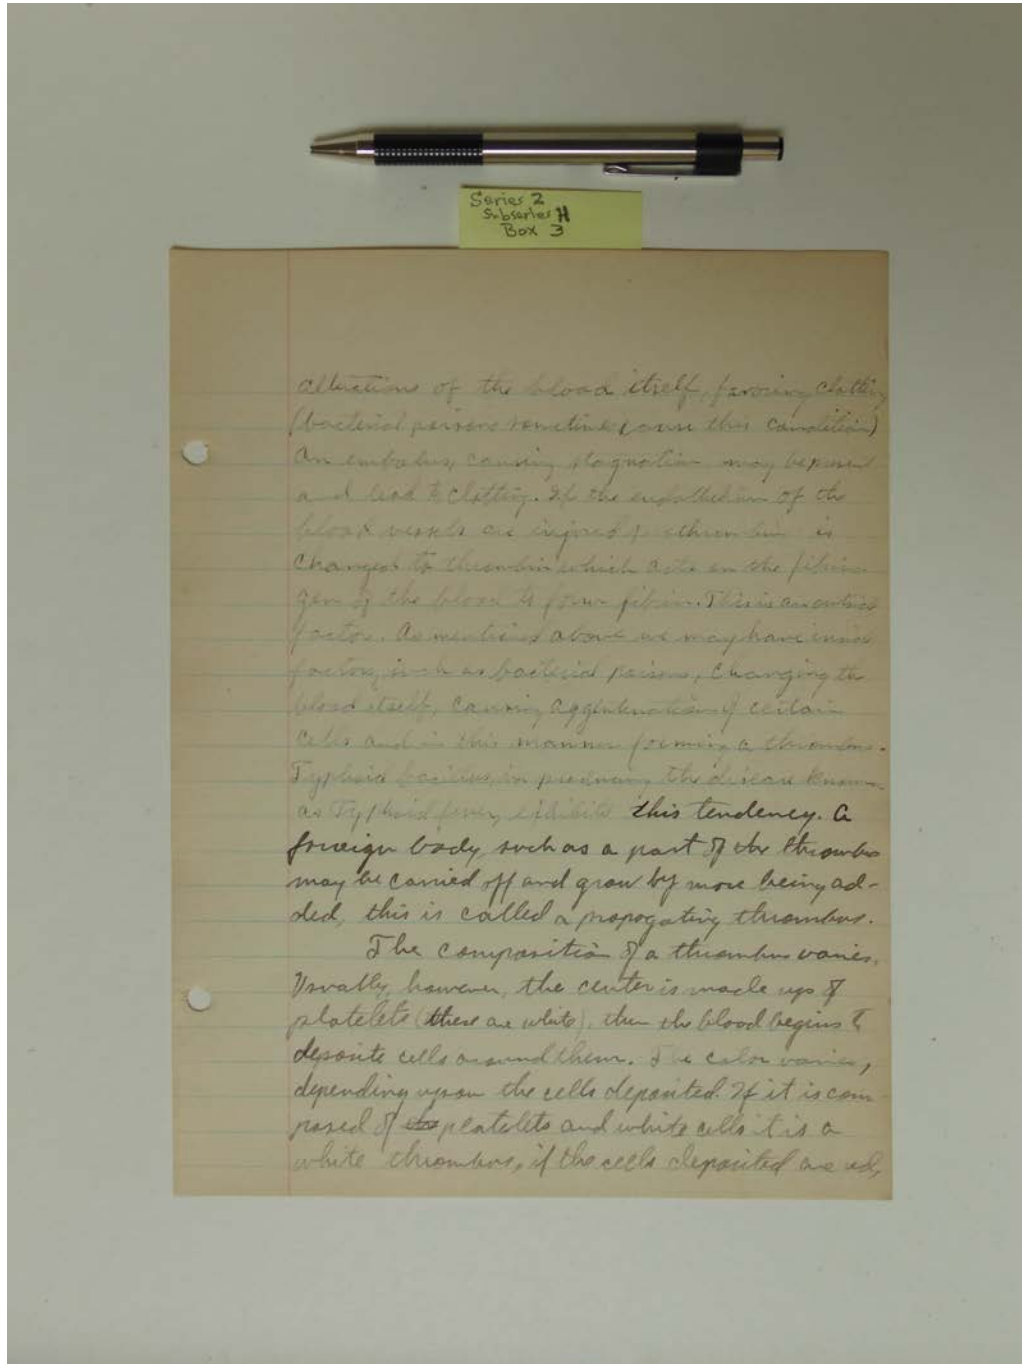 Series 2
Subseries H
Box 3
of the blood itself, favoring clotting
(bacterial poisons sometimes cause this condition)
An embolus, causing stagnation may be present
and lead to clotting. If the endothelium of the
blood vessels are injured is
changed to thrombin which acts on the fibrino
gen of the blood to form fibrin. This is an outside
factor. As mentioned above we may have inside
factors, such as bacterial poisons, changing the
blood itself, causing of certain
cells and in this manner forming a thrombus.
Typhoid bacillus, in producing the disease known
as Typhoid fever, exhibits this tendency. A
foreign body, such as a part of the thrombus
may be carried off and grow by more being ad-
ded, this is called a propogating thrombus.
The composition of a thrombus varies.
Usually, however, the center is made up of
platelets (these are white), then the blood begins to
deposite cells around them. The color varies,
depending upon the cells deposited. If it is com-
posed of the platelets and white cells it is a
white thrombus, if the cells deposited are red,